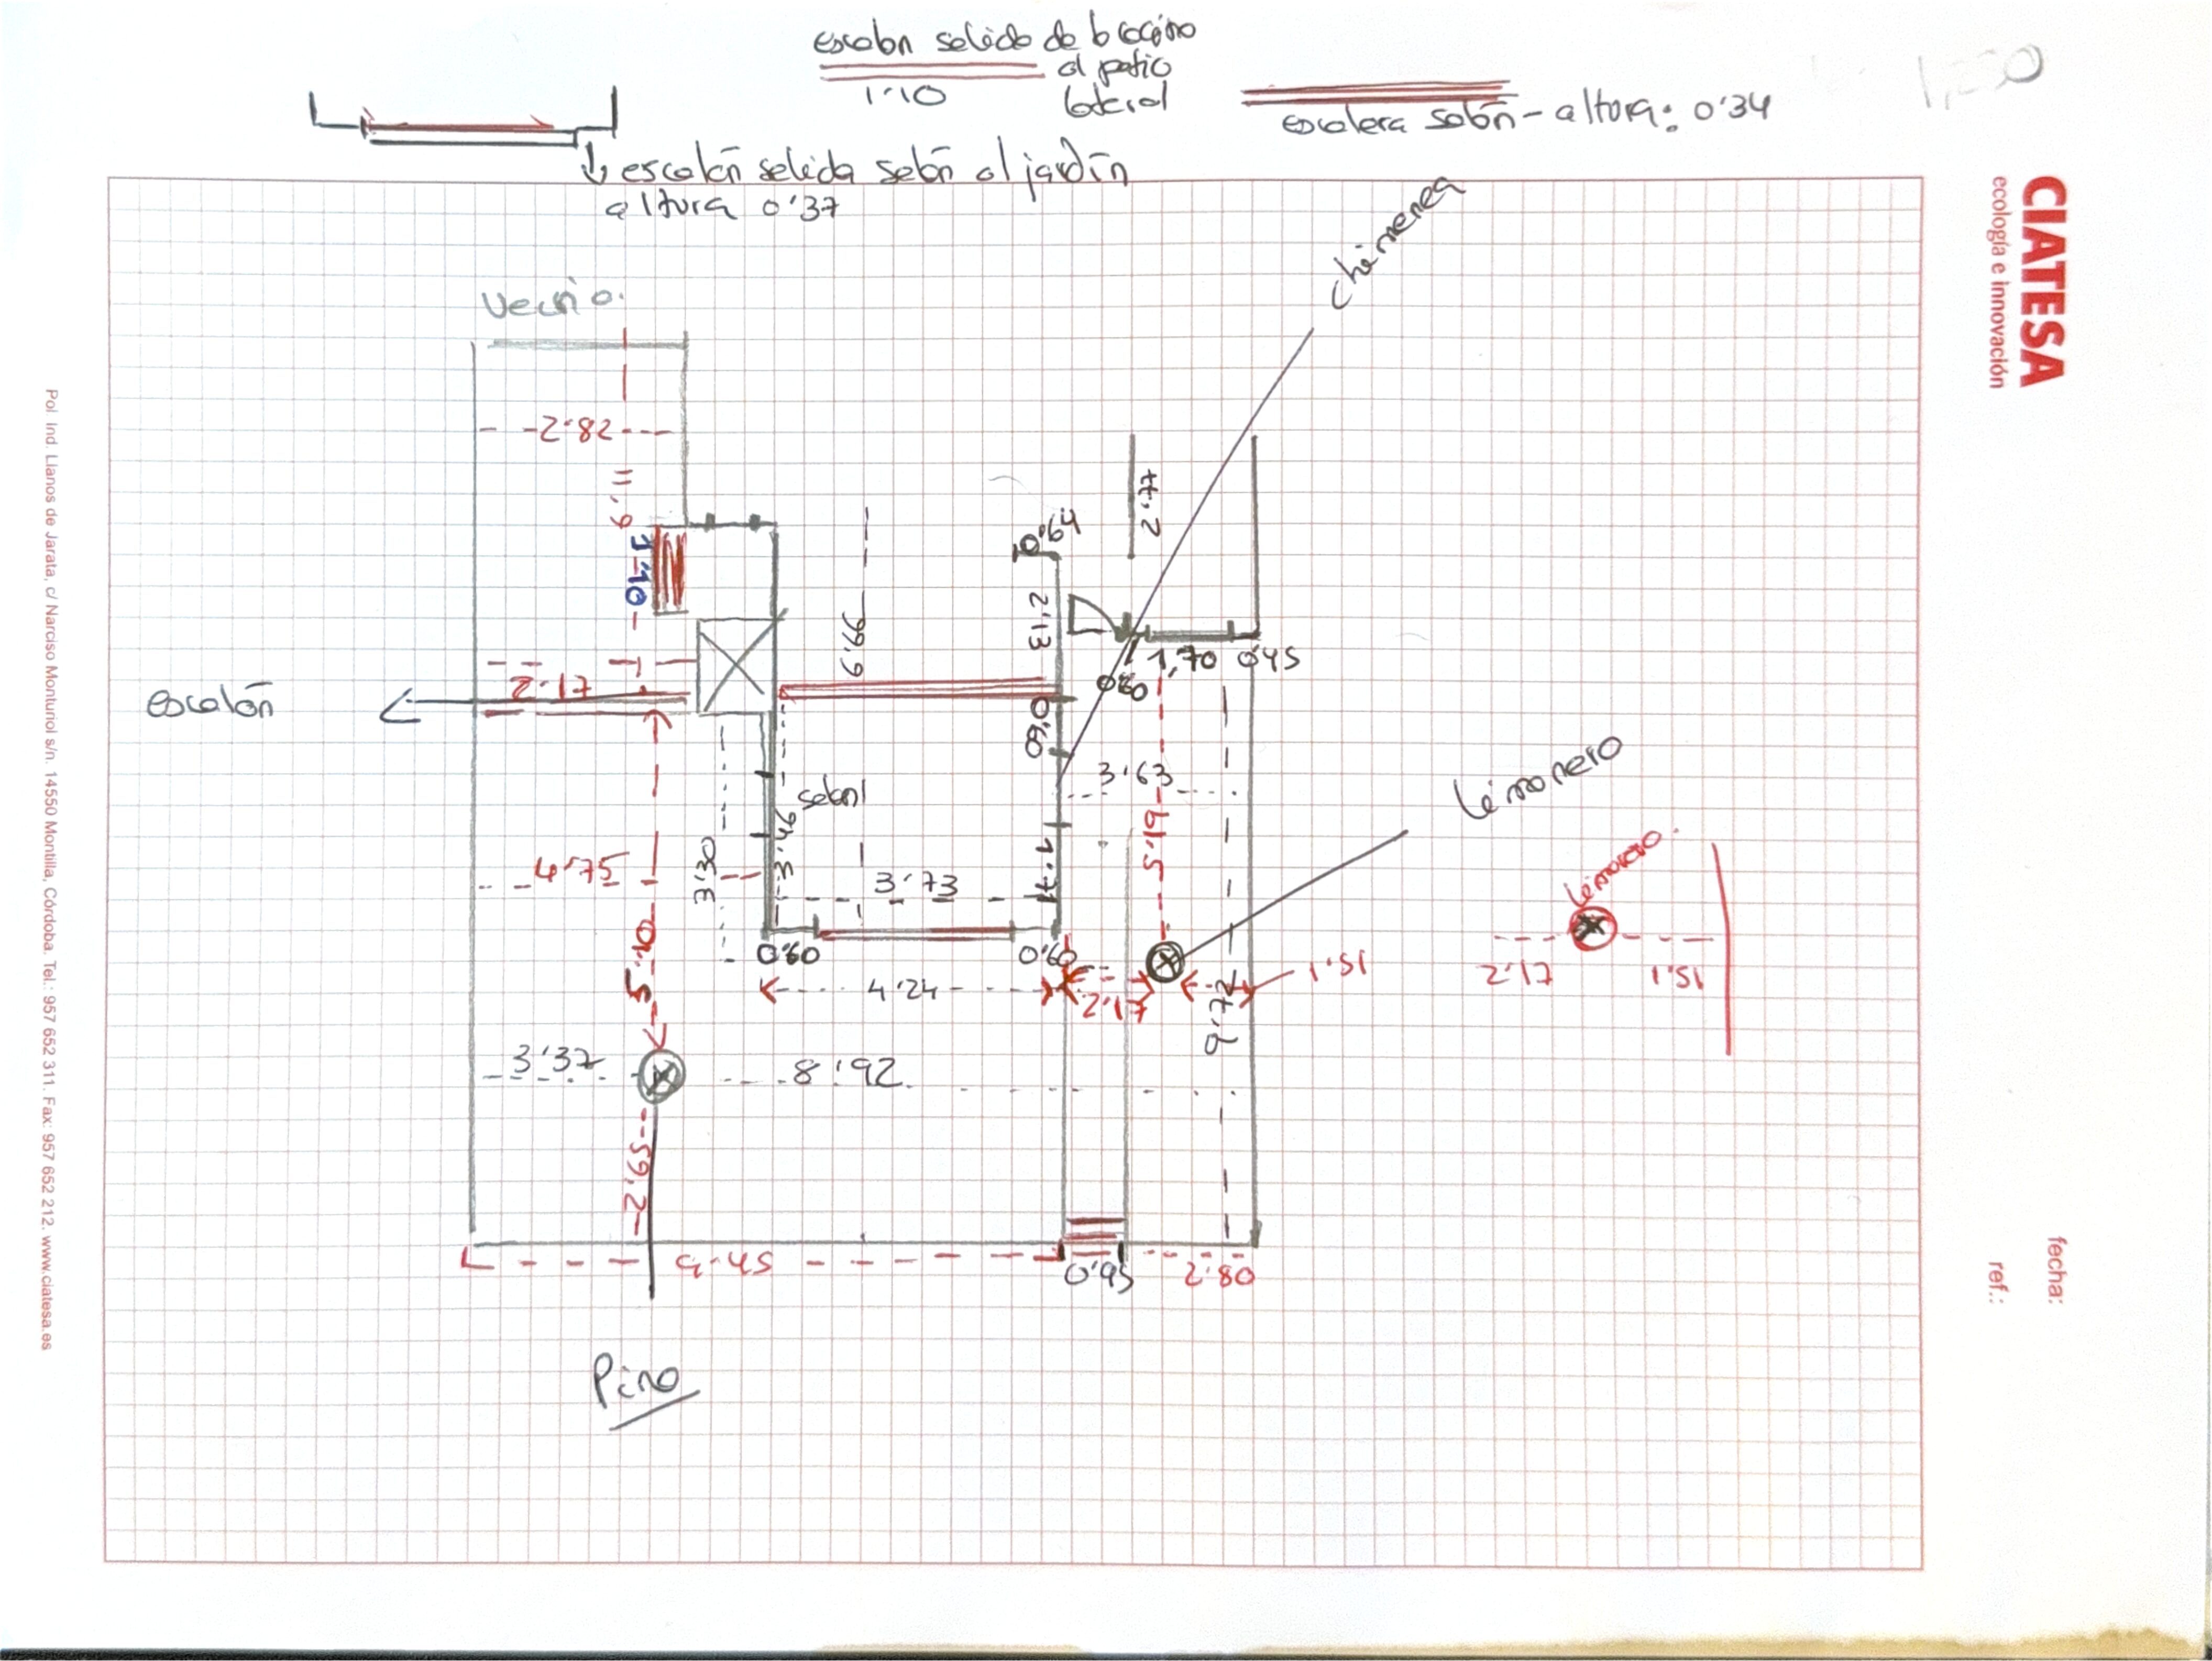 escalón salida de la cocina
al patio
lateral
1'10
1,230
escalera salón - altura: 0'34
↓ escalón salida salón al jardín
altura 0'37
chimenea
Vecino.
2'82
11,9
1'10
0'64
2'77
2'13
6'66
1,70
0'45
0'80
2'17
escalón
0'60
3'63
salón
limonero
3'46
3'30
4'75
3'73
1'71
5'19
limonero.
0'60
0'60
5'10
4'24
2'17
1'51
2'17
1'51
9'72
3'37
8'92
2'65
9'45
0'95
2'80
Pino
CIATESA
ecología e innovación
fecha:
ref.:
Pol. Ind. Llanos de Jarata, c/ Narciso Monturiol s/n. 14550 Montilla, Córdoba. Tel.: 957 652 311. Fax: 957 652 212. www.ciatesa.es